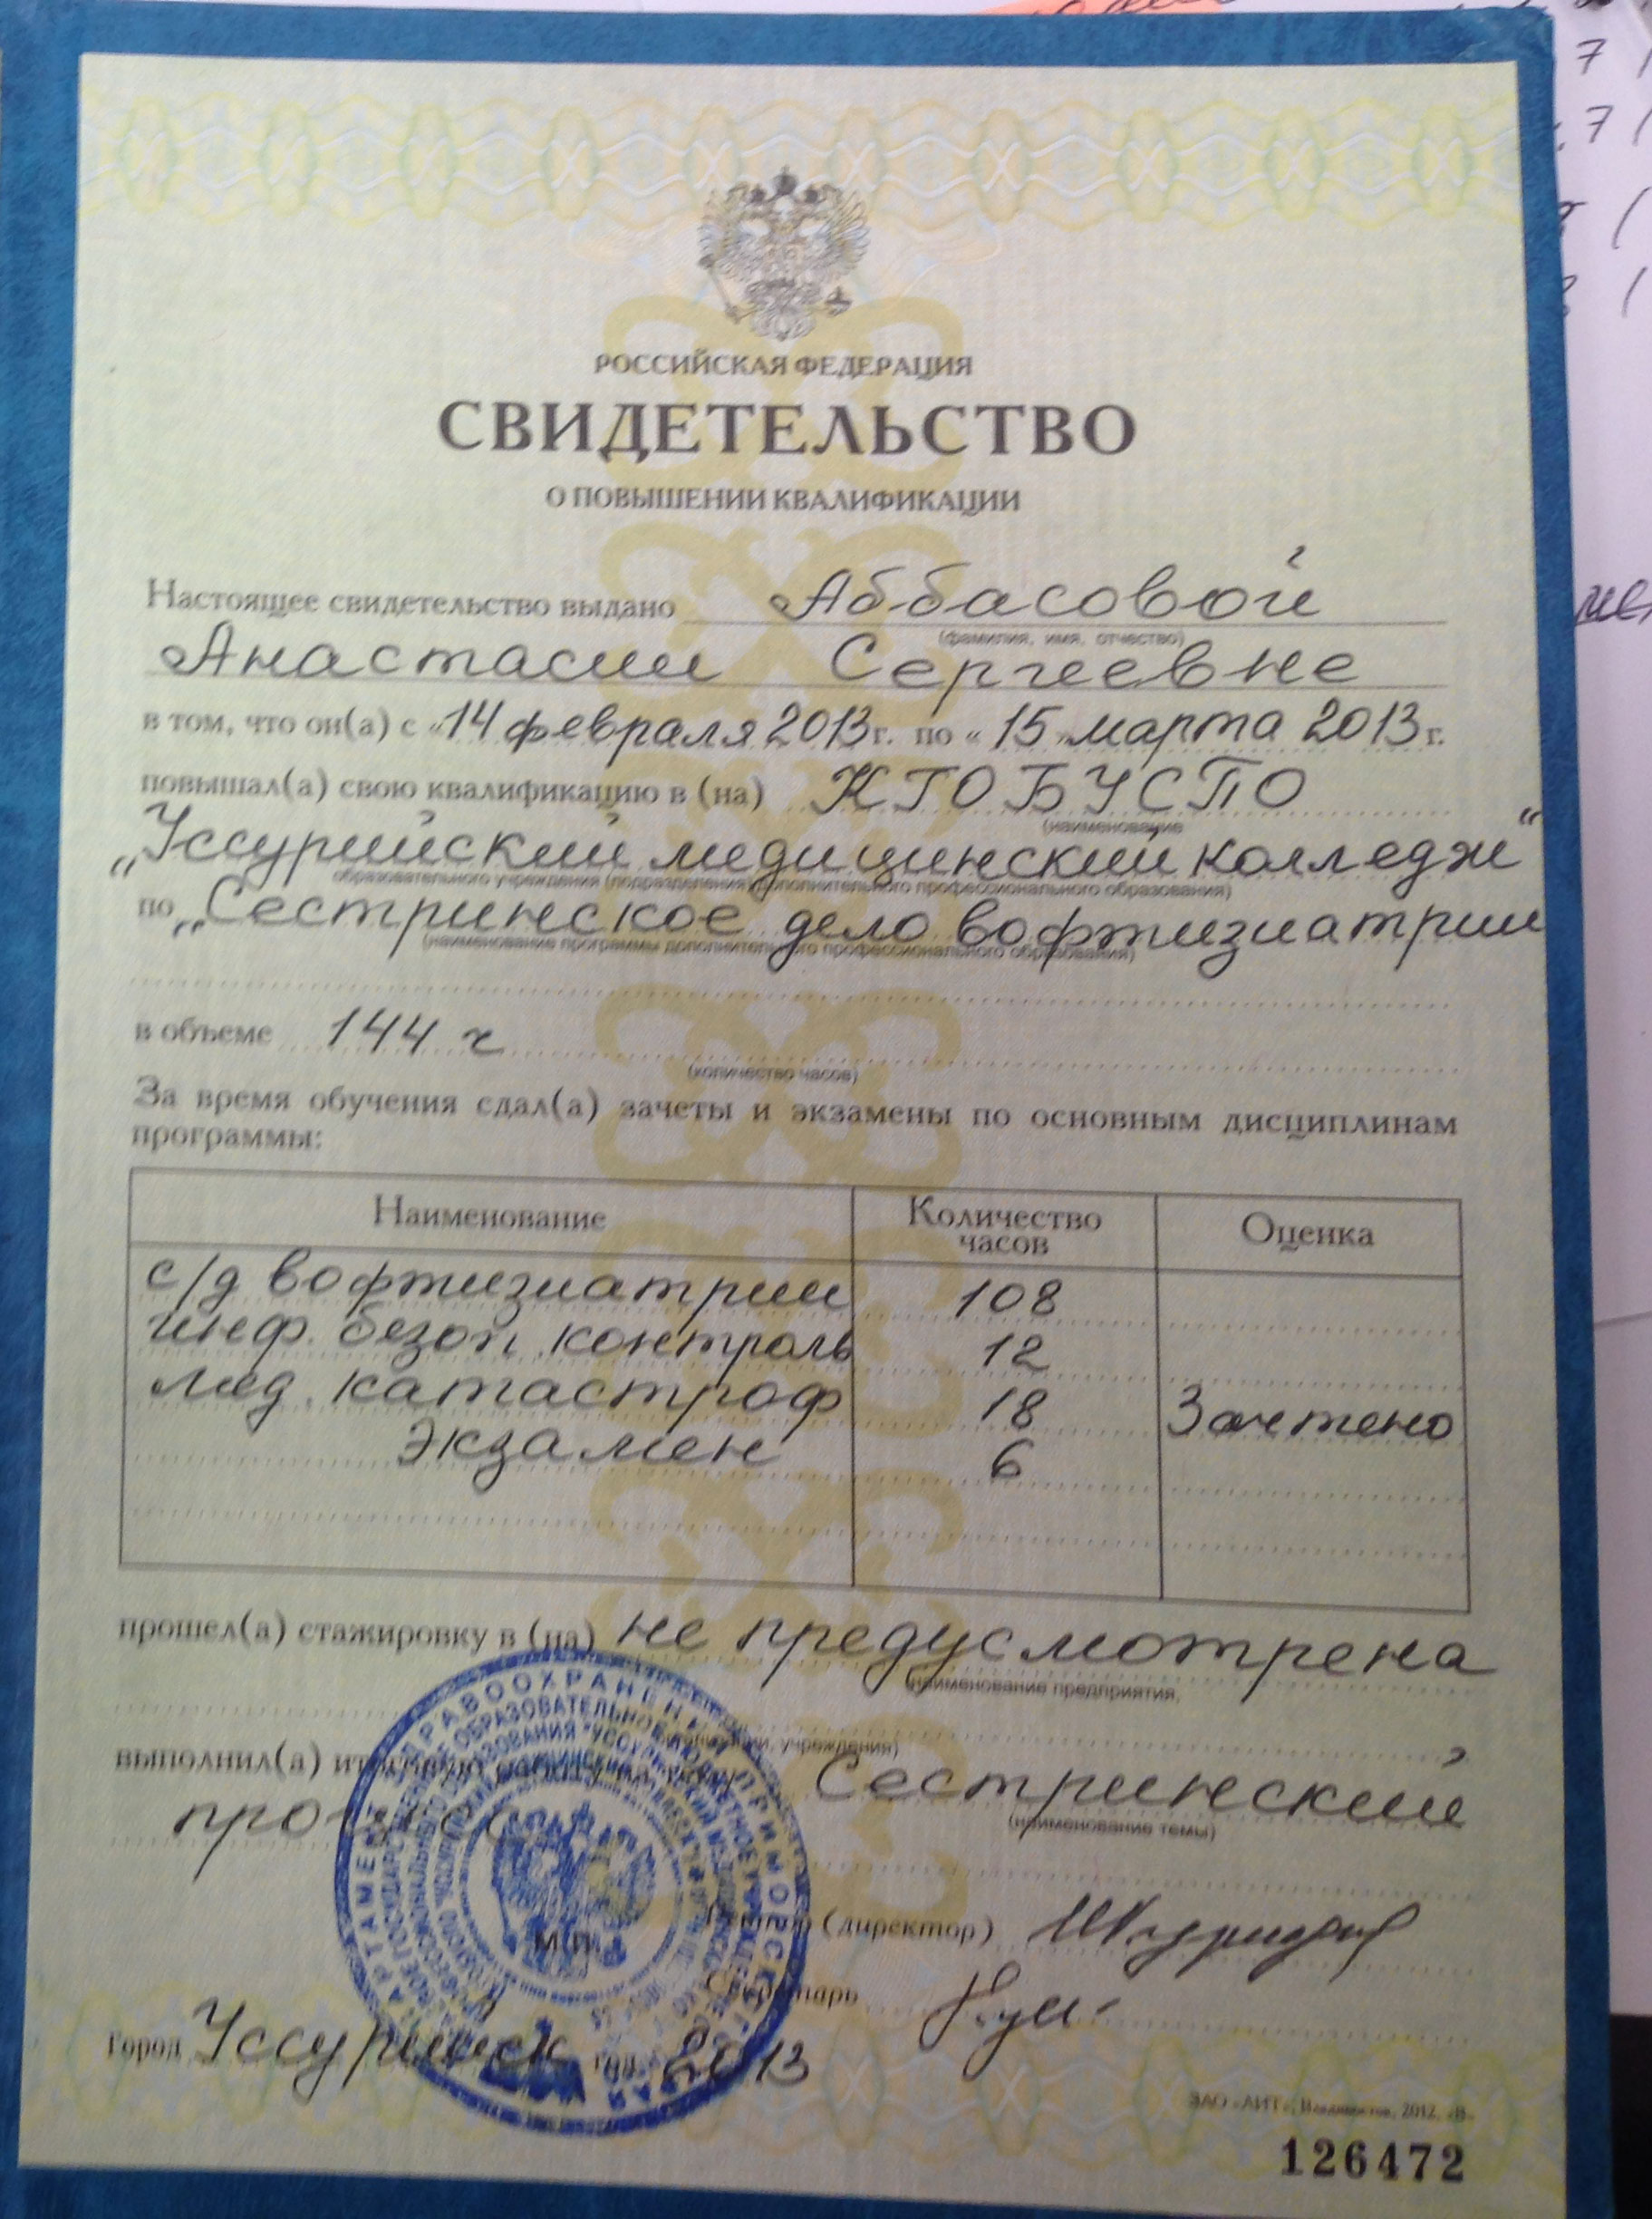 РОССИЙСКАЯ ФЕДЕРАЦИЯ
СВИДЕТЕЛЬСТВО
О ПОВЫШЕНИИ КВАЛИФИКАЦИИ
Настоящее свидетельство выдано Аббасовой
(фамилия, имя, отчество)
Анастасии Сергеевне
в том, что он(а) с «14 февраля 2013 г. по «15» марта 2013 г.
повышал(а) свою квалификацию в (на) КГОБУСПО
(наименование
„Уссурийский медицинский колледж“
образовательного учреждения (подразделения) дополнительного профессионального образования)
по „Сестринское дело вофтизиатрии
(наименование программы дополнительного профессионального образования)
в объеме 144 ч
(количество часов)
За время обучения сдал(а) зачеты и экзамены по основным дисциплинам
программы:
Наименование Количество часов Оценка
с/д вофтизиатрии 108
инф. безоп. контроль 12
мед. катастроф 18 Зачтено
Экзамен 6
прошел(а) стажировку в (на) не предусмотрена
(наименование предприятия,
учреждения)
выполнил(а) Сестринский
(наименование темы)
(директор)
М.П.
Секретарь
Город Уссурийск год 2013
ЗАО «АИТ», Владивосток, 2012, «В»
126472